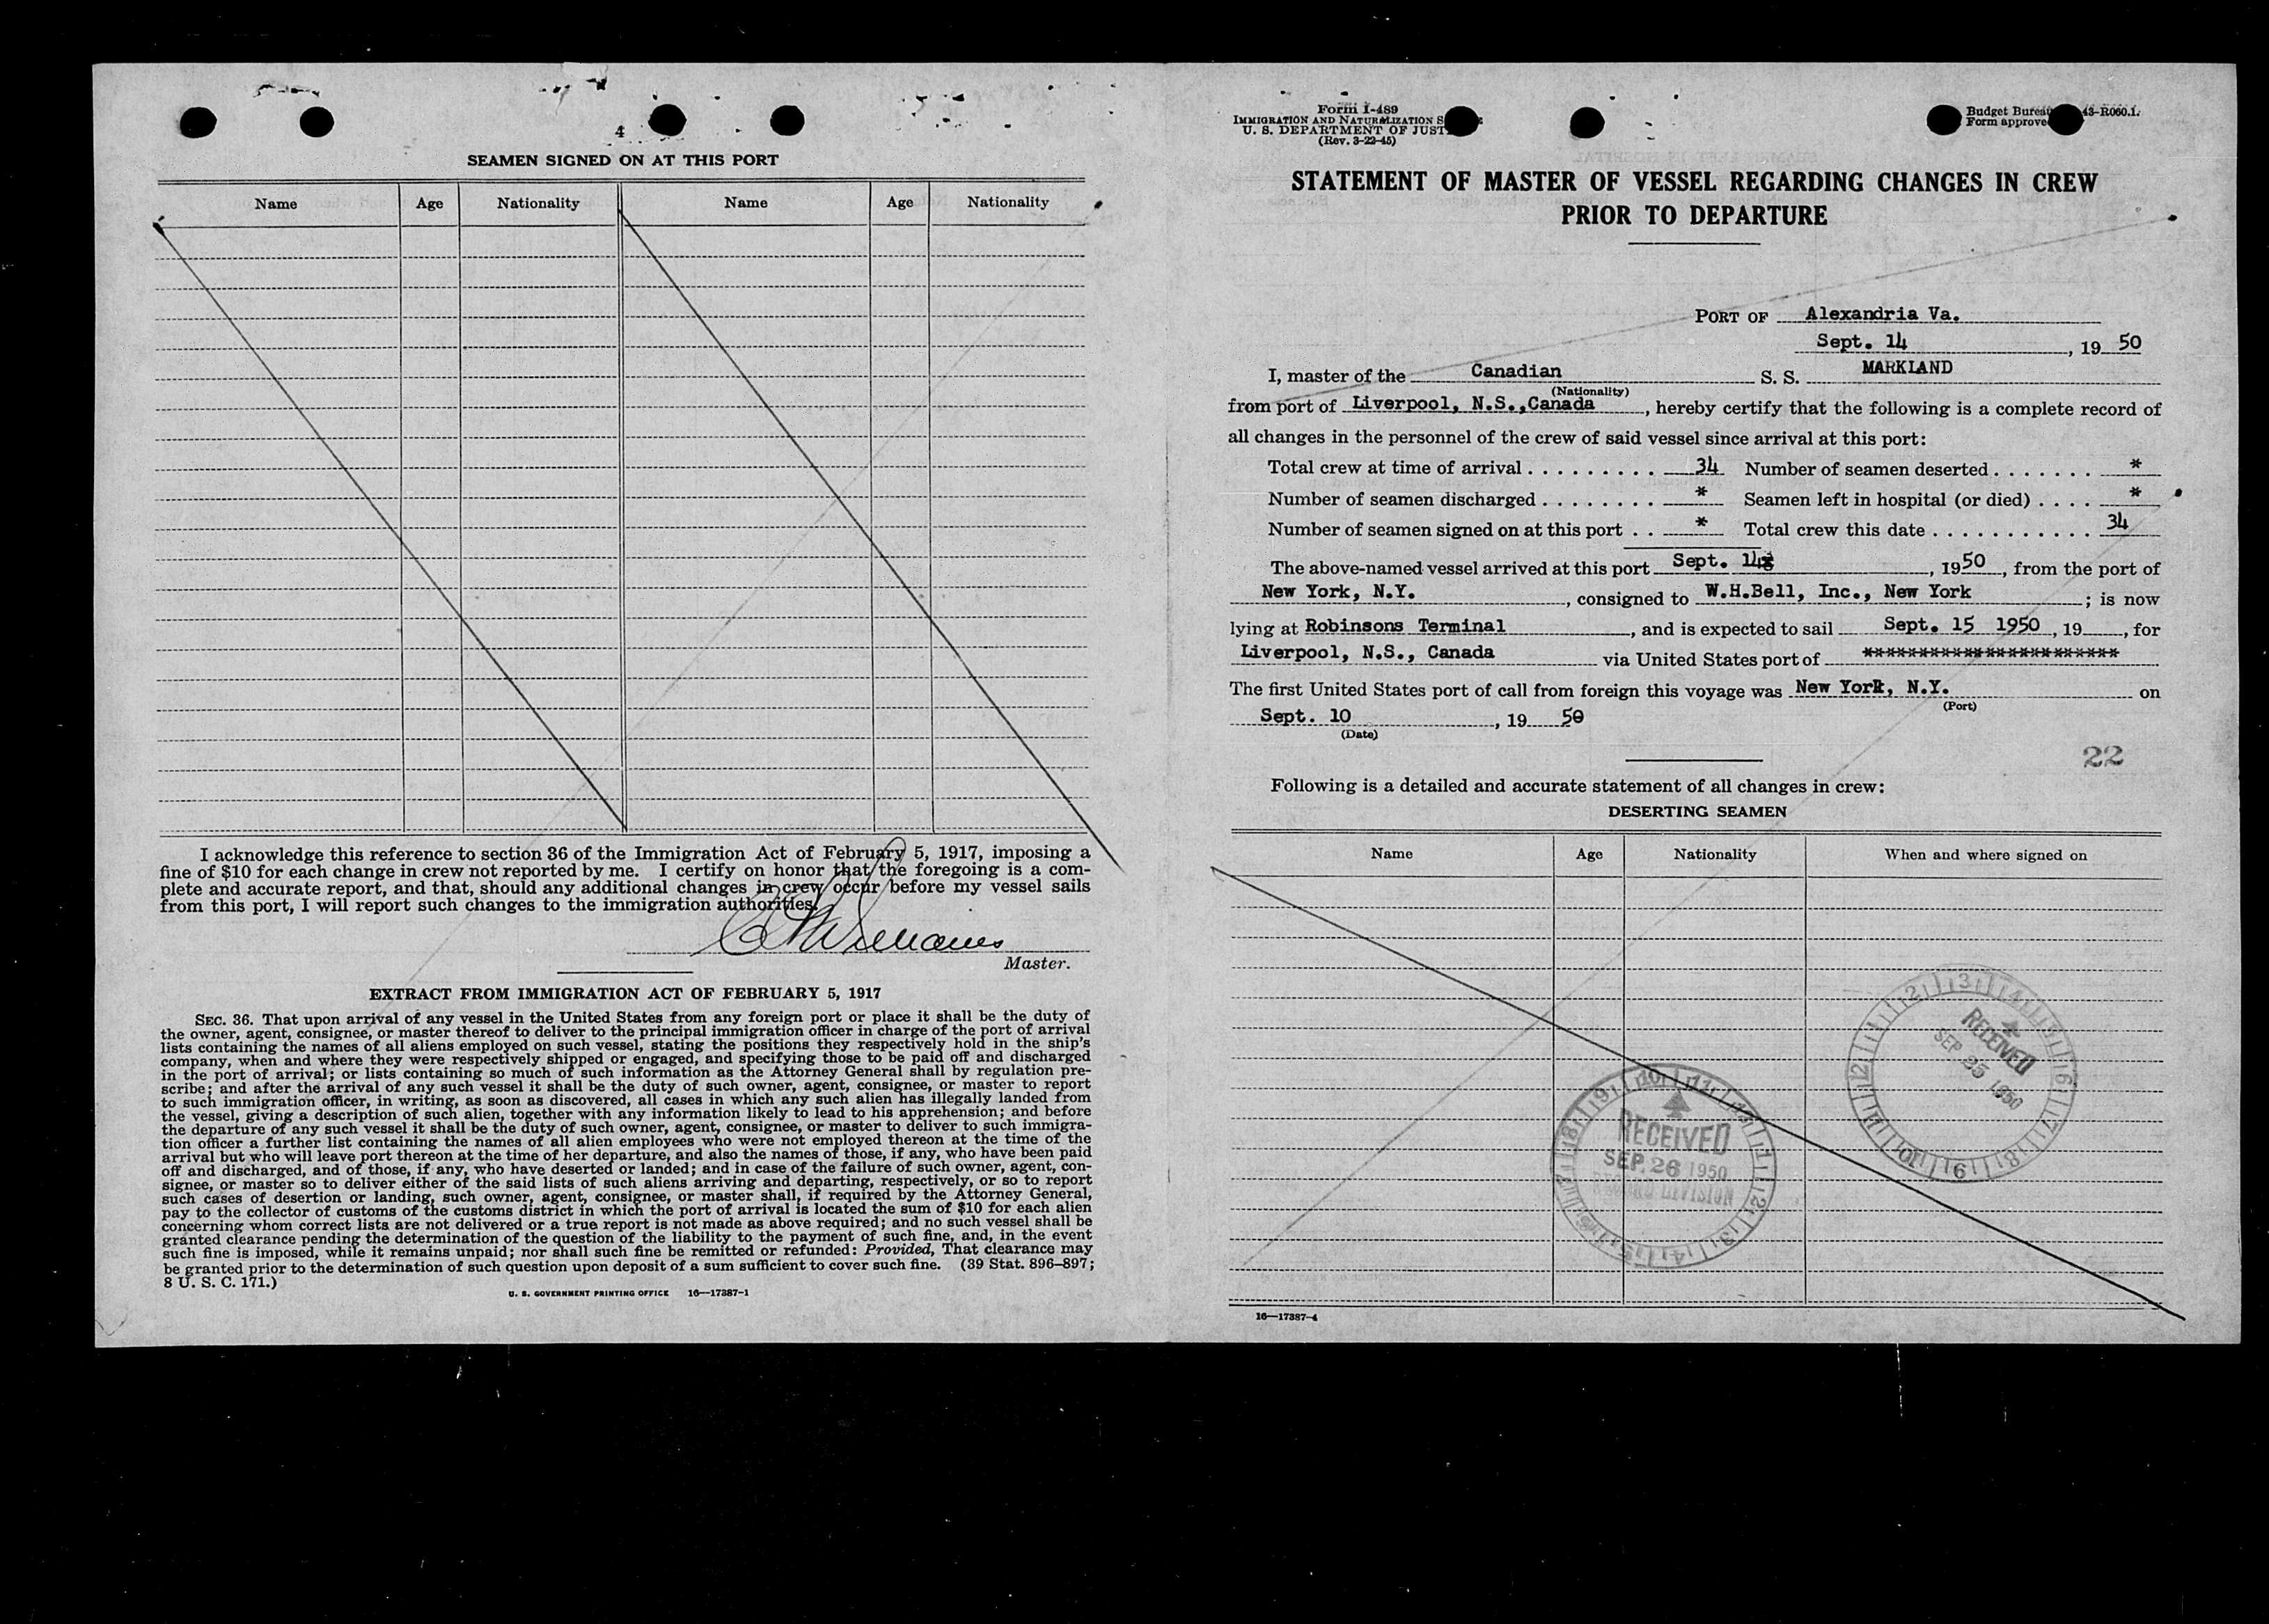 4
SEAMEN SIGNED ON AT THIS PORT
Name Age Nationality Name Age Nationality
I acknowledge this reference to section 36 of the Immigration Act of February 5, 1917, imposing a
fine of $10 for each change in crew not reported by me. I certify on honor that the foregoing is a com-
plete and accurate report, and that, should any additional changes in crew occur before my vessel sails
from this port, I will report such changes to the immigration authorities.
Master.
EXTRACT FROM IMMIGRATION ACT OF FEBRUARY 5, 1917
SEC. 36. That upon arrival of any vessel in the United States from any foreign port or place it shall be the duty of
the owner, agent, consignee, or master thereof to deliver to the principal immigration officer in charge of the port of arrival
lists containing the names of all aliens employed on such vessel, stating the positions they respectively hold in the ship's
company, when and where they were respectively shipped or engaged, and specifying those to be paid off and discharged
in the port of arrival; or lists containing so much of such information as the Attorney General shall by regulation pre-
scribe; and after the arrival of any such vessel it shall be the duty of such owner, agent, consignee, or master to report
to such immigration officer, in writing, as soon as discovered, all cases in which any such alien has illegally landed from
the vessel, giving a description of such alien, together with any information likely to lead to his apprehension; and before
the departure of any such vessel it shall be the duty of such owner, agent, consignee, or master to deliver to such immigra-
tion officer a further list containing the names of all alien employees who were not employed thereon at the time of the
arrival but who will leave port thereon at the time of her departure, and also the names of those, if any, who have been paid
off and discharged, and of those, if any, who have deserted or landed; and in case of the failure of such owner, agent, con-
signee, or master so to deliver either of the said lists of such aliens arriving and departing, respectively, or so to report
such cases of desertion or landing, such owner, agent, consignee, or master shall, if required by the Attorney General,
pay to the collector of customs of the customs district in which the port of arrival is located the sum of $10 for each alien
concerning whom correct lists are not delivered or a true report is not made as above required; and no such vessel shall be
granted clearance pending the determination of the question of the liability to the payment of such fine, and, in the event
such fine is imposed, while it remains unpaid; nor shall such fine be remitted or refunded: Provided, That clearance may
be granted prior to the determination of such question upon deposit of a sum sufficient to cover such fine. (39 Stat. 896–897;
8 U. S. C. 171.)
U. S. GOVERNMENT PRINTING OFFICE 16—17387-1
Form I-489
IMMIGRATION AND NATURALIZATION S
U. S. DEPARTMENT OF JUST
(Rev. 3-22-45)
Budget Bureau 43-R060.1.
Form approve
STATEMENT OF MASTER OF VESSEL REGARDING CHANGES IN CREW
PRIOR TO DEPARTURE
PORT OF Alexandria Va.
Sept. 14, 19 50
I, master of the Canadian S. S. MARKLAND
(Nationality)
from port of Liverpool, N.S.,Canada, hereby certify that the following is a complete record of
all changes in the personnel of the crew of said vessel since arrival at this port:
Total crew at time of arrival . . . . . . . . . 34 Number of seamen deserted . . . . . . . *
Number of seamen discharged . . . . . . . . * Seamen left in hospital (or died) . . . . *
Number of seamen signed on at this port . . * Total crew this date . . . . . . . . . . . 34
The above-named vessel arrived at this port Sept. 14, 1950, from the port of
New York, N.Y., consigned to W.H.Bell, Inc., New York; is now
lying at Robinsons Terminal, and is expected to sail Sept. 15 1950, 19, for
Liverpool, N.S., Canada via United States port of ************************
The first United States port of call from foreign this voyage was New York, N.Y. on
(Port)
Sept. 10, 19 50
(Date)
22
Following is a detailed and accurate statement of all changes in crew:
DESERTING SEAMEN
Name Age Nationality When and where signed on
RECEIVED
SEP 25 1950
RECEIVED
SEP. 26 1950
RECORD DIVISION
16—17387-4